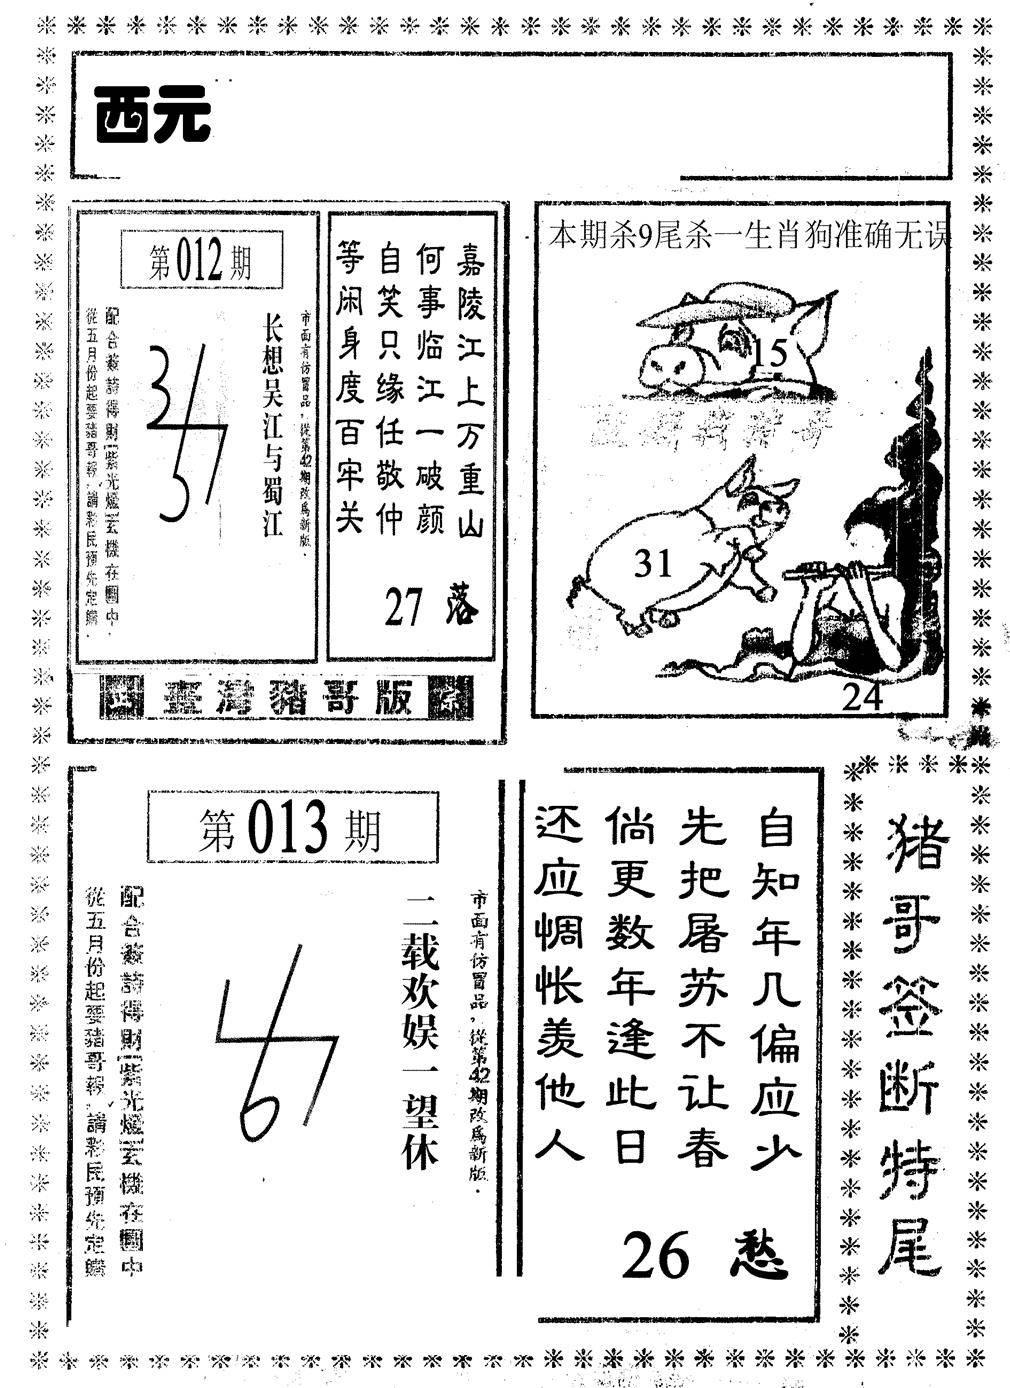 西元
第012期
市面有仿冒品，從第42期改爲新版．
长想吴江与蜀江
配合簽詩得財紫光爐玄機在圖中
從五月份起要豬哥報，請彩民預先定購．
嘉陵江上万重山
何事临江一破颜
自笑只缘任敬仲
等闲身度百牢关
27 落
臺灣豬哥版
本期杀9尾杀一生肖狗准确无误
15
31
24
第013期
市面有仿冒品，從第42期改爲新版．
二载欢娱一望休
配合簽詩得財紫光爐玄機在圖中
從五月份起要豬哥報，請彩民預先定購
自知年几偏应少
先把屠苏不让春
倘更数年逢此日
还应惆怅羡他人
26 愁
猪哥签断特尾